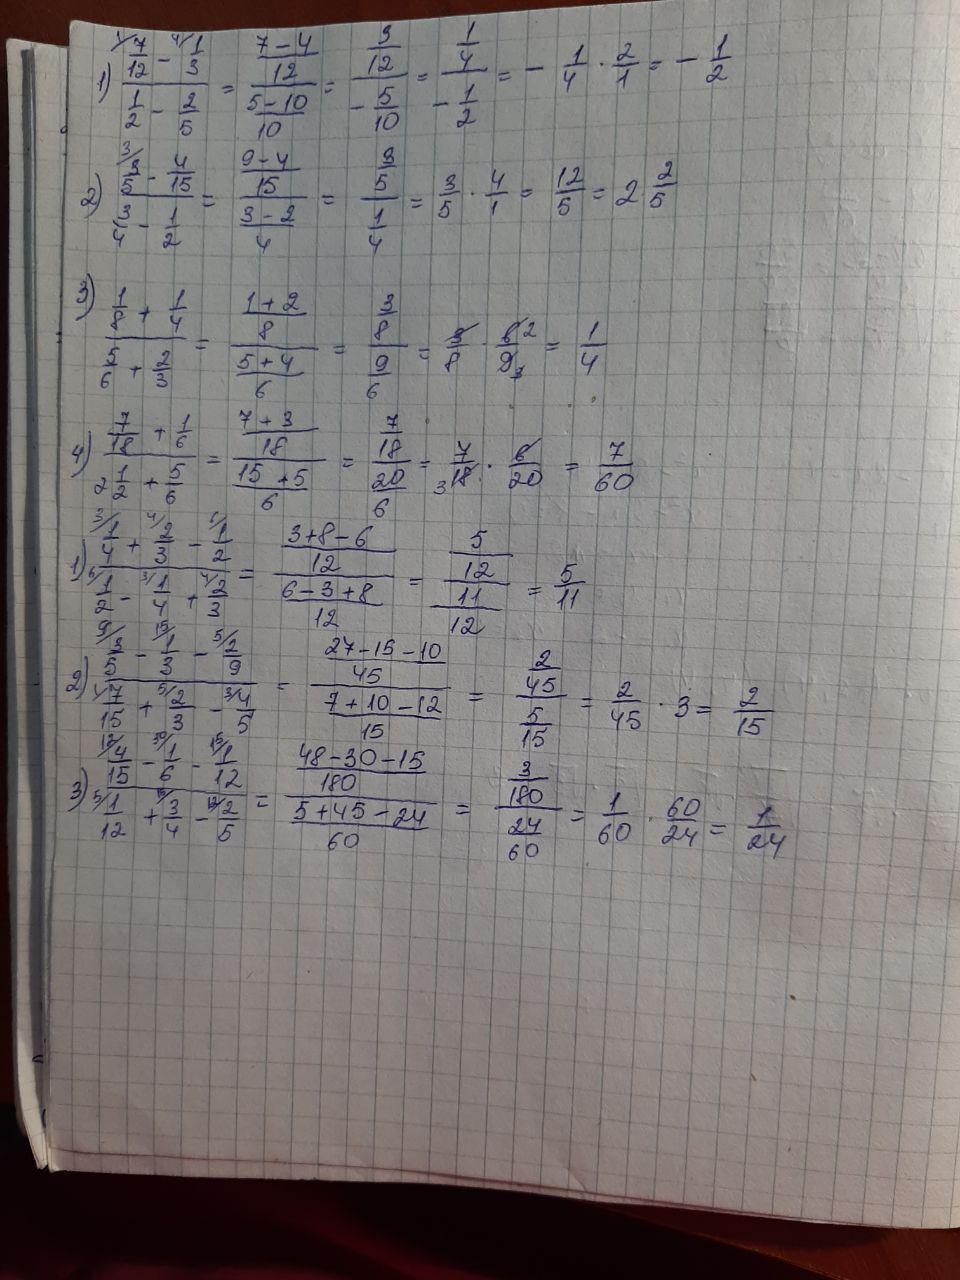 1) (7/12 - 1/3)/(1/2 - 2/5) = ((7-4)/12)/((5-10)/10) = (3/12)/(-5/10) = (1/4)/(-1/2) = - 1/4 · 2/1 = - 1/2
2) (3/5 - 4/15)/(3/4 - 1/2) = ((9-4)/15)/((3-2)/4) = (3/5)/(1/4) = 3/5 · 4/1 = 12/5 = 2 2/5
3) (1/8 + 1/4)/(5/6 + 2/3) = ((1+2)/8)/((5+4)/6) = (3/8)/(9/6) = 3/8 · 6/9 = 1/4
4) (7/18 + 1/6)/(2 1/2 + 5/6) = ((7+3)/18)/((15+5)/6) = (7/18)/(20/6) = 7/18 · 6/20 = 7/60
1) (1/4 + 2/3 - 1/2)/(1/2 - 1/4 + 2/3) = ((3+8-6)/12)/((6-3+8)/12) = (5/12)/(11/12) = 5/11
2) (3/5 - 1/3 - 2/9)/(7/15 + 2/3 - 4/5) = ((27-15-10)/45)/((7+10-12)/15) = (2/45)/(5/15) = 2/45 · 3 = 2/15
3) (4/15 - 1/6 - 1/12)/(1/12 + 3/4 - 2/5) = ((48-30-15)/180)/((5+45-24)/60) = (3/180)/(24/60) = 1/60 · 60/24 = 1/24